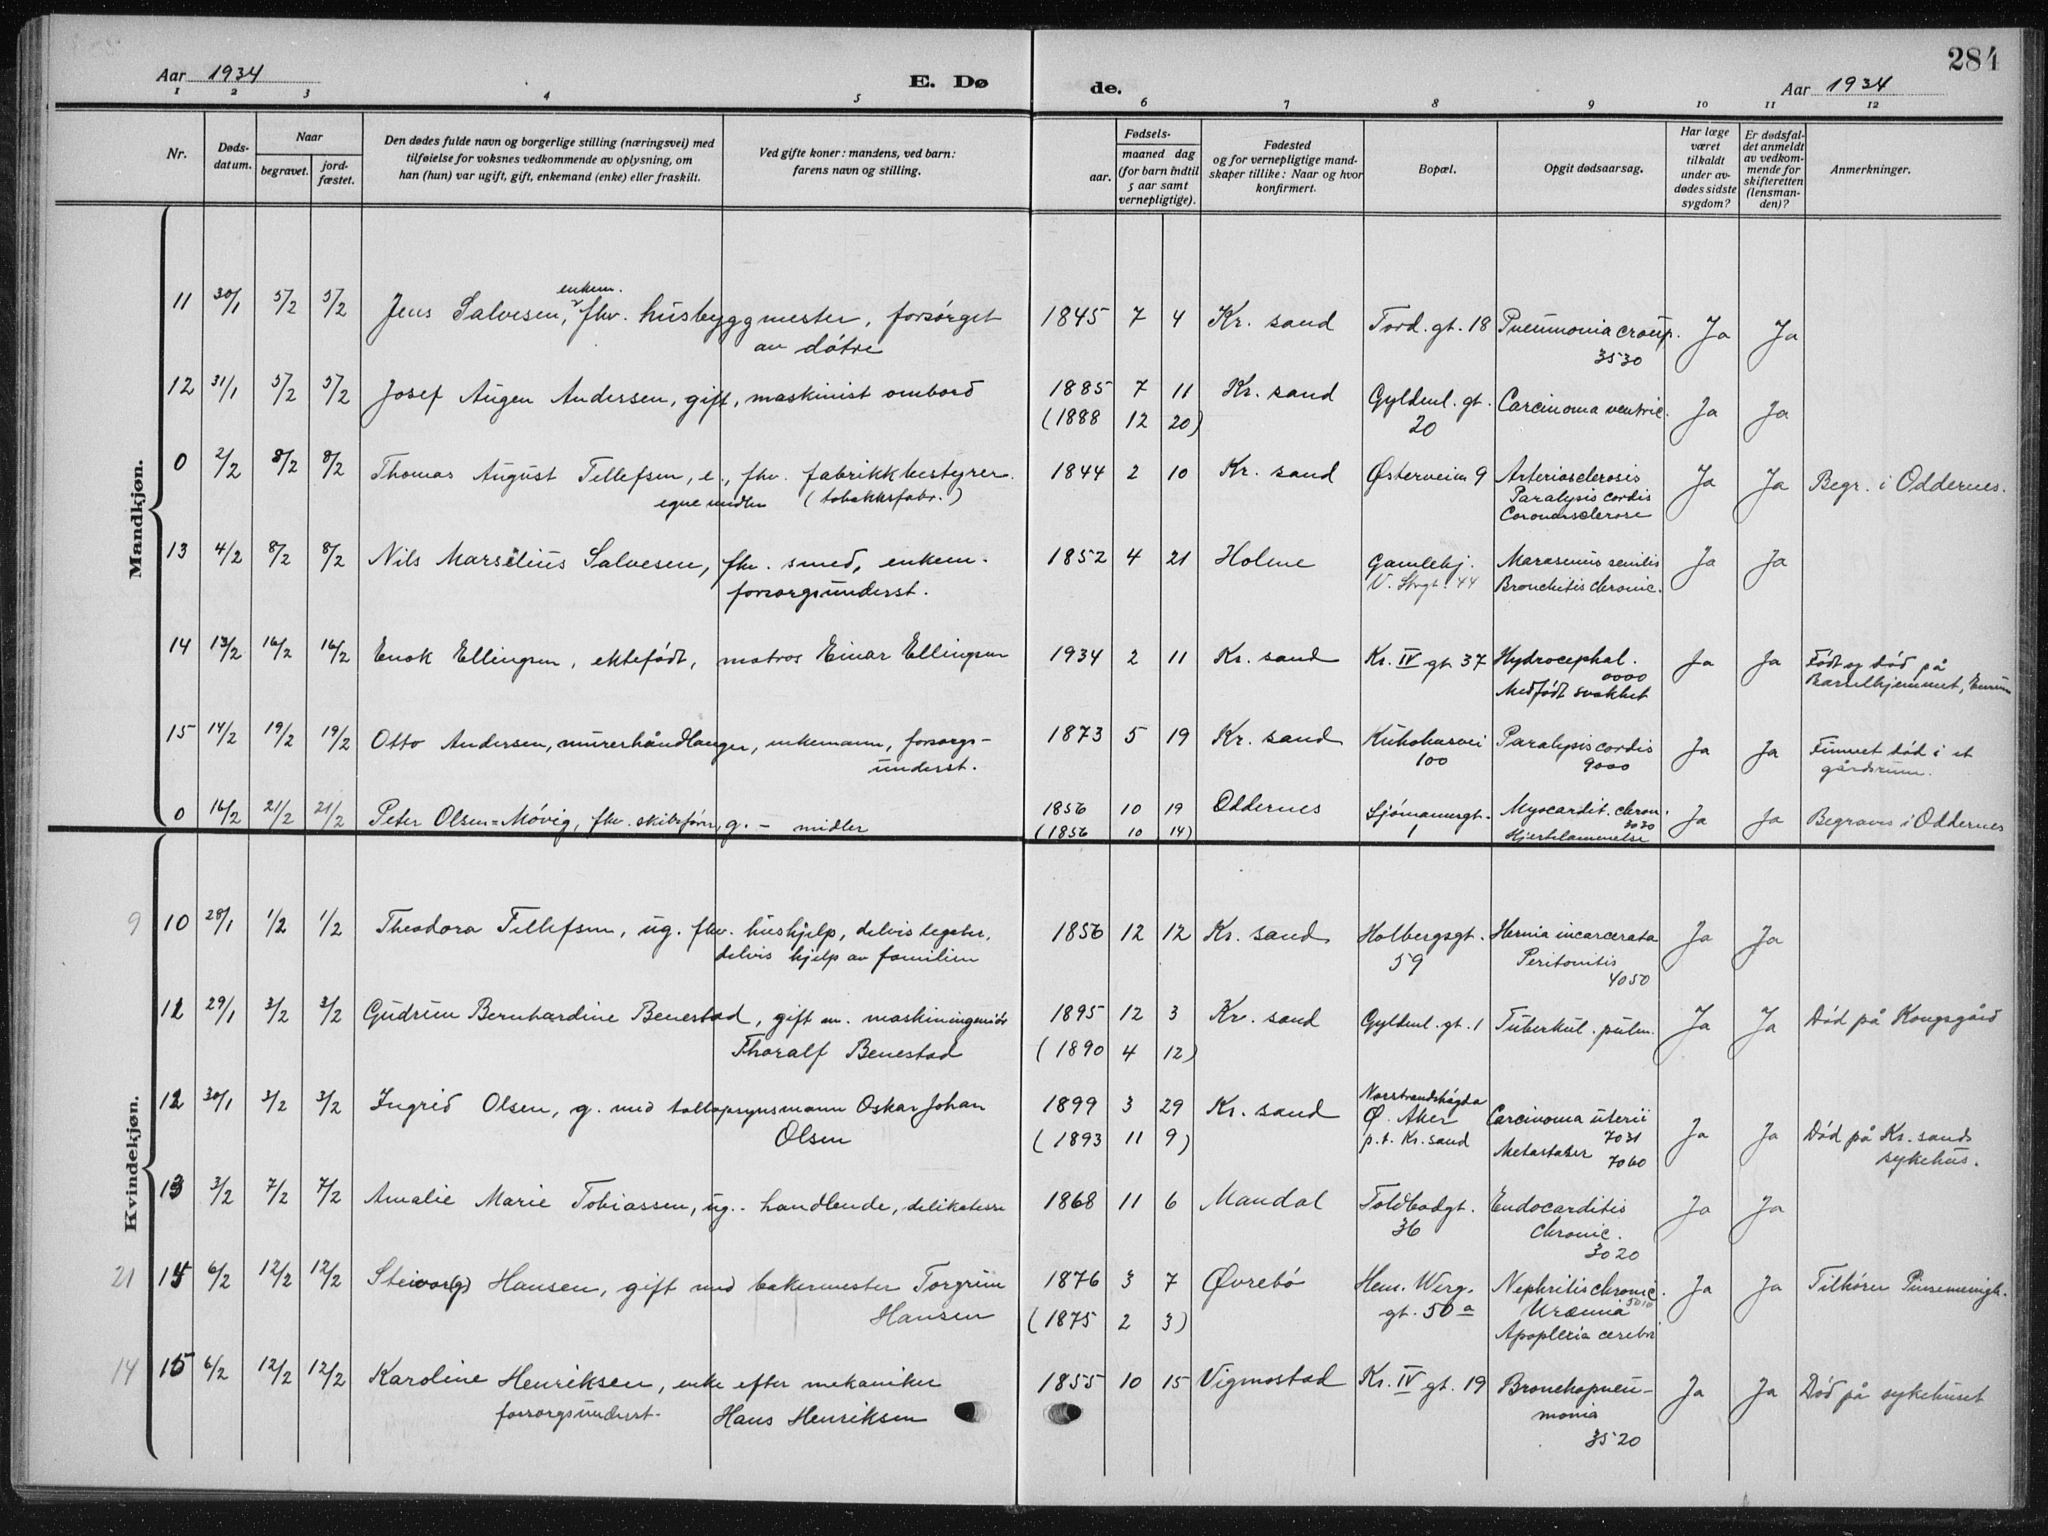 284
Aar 1934
E. Dø
de.
Aar 1934
1 2 3 4 5 6 7 8 9 10 11 12
Nr.
Døds-
datum.
Naar
begravet.
jord-
fæstet.
Den dødes fulde navn og borgerlige stilling (næringsvei) med
tilføielse for voksnes vedkommende av oplysning, om
han (hun) var ugift, gift, enkemand (enke) eller fraskilt.
Ved gifte koner: mandens, ved barn:
farens navn og stilling.
Fødsels-
aar.
maaned dag
(for barn indtil
5 aar samt
vernepligtige).
Fødested
og for vernepligtige mand-
skaper tillike: Naar og hvor
konfirmert.
Bopæl.
Opgit dødsaarsag.
Har læge
været
tilkaldt
under av-
dødes sidste
sygdom?
Er dødsfal-
det anmeldt
av vedkom-
mende for
skifteretten
(lensman-
den)?
Anmerkninger.
Mandkjøn.
enkem.
11 30/1 5/2 5/2 Jens Salvesen, fhv. husbyggmester, forsørget 1845 7 4 Kr. sand Tord. gt. 18 Pneumonia croup. Ja Ja
av døtre 3530
12 31/1 5/2 5/2 Josef Augen Andersen, gift, maskinist ombord 1885 7 11 Kr. sand Gyldenl. gt. Carcinoma ventric. Ja Ja
(1888 12 20) 20
0 2/2 8/2 8/2 Thomas August Tellefsen, e., fhv. fabrikkbestyrer 1844 2 10 Kr. sand Østerveien 9 Arteriosclerosis Ja Ja Begr. i Oddernes.
egne midler (tobakksfabr.) Paralysis cordis
Coronarsclerose
13 4/2 8/2 8/2 Nils Marselius Salvesen, fhv. smed, enkem. 1852 4 21 Holme Gamlehj. Marasmus senilis Ja Ja
forsorgsunderst. V. Strgt. 44 Bronchitis chronic.
14 13/2 16/2 16/2 Enok Ellingsen, ektefødt, matros Einar Ellingsen 1934 2 11 Kr. sand Kr. IV gt. 37 Hydrocephal. Ja Ja Født og død på
0000 Barselhjemmet,
Medfødt svakhet
15 14/2 19/2 19/2 Otto Andersen, murerhåndlanger, enkemann, forsorgs- 1873 5 19 Kr. sand Kuholmsvei Paralysis cordis Ja Ja Funnet død i et
underst. 100 9000 gårdsrum.
0 16/2 21/2 21/2 Peter Olsen=Møvig, fhv. skibsfører, g. - midler 1856 10 19 Oddernes Sjømannsgt. Myocardit. chron. Ja Ja Begraves i Oddernes
(1856 10 14) 1 3030
Hjertelammelse
Kvindekjøn.
9 10 28/1 1/2 1/2 Theodora Tellefsen, ug. fhv. hushjelp, delvis legater, 1856 12 12 Kr. sand Holbergsgt. Hernia incarcerata Ja Ja
delvis hjelp av familien 59 Peritonitis
4050
11 29/1 3/2 3/2 Gudrun Bernhardine Benestad, gift m. maskiningeniør 1895 12 3 Kr. sand Gyldenl. gt. 1 Tuberkul. pulm. Ja Ja Død på Kongsgård
Thoralf Benestad (1890 4 12)
12 30/1 3/2 3/2 Ingrid Olsen, g. med tollopsynsmann Oskar Johan 1899 3 29 Kr. sand Norstrandshøgda Carcinoma uterii Ja Ja Død på Kr. sands
Olsen (1893 11 9) Ø. Aker 7031 sykehus.
p.t. Kr. sand Metastaser 7060
13 3/2 7/2 7/2 Amalie Marie Tobiassen, ug. handlende, delikatesse 1868 11 6 Mandal Toldbodgt. Endocarditis Ja Ja
36 chronic.
3020
21 6/2 12/2 12/2 Steivor(g) Hansen, gift med bakermester Torgrim 1876 3 7 Øvrebø Hen. Werg. Nephritis chronic. Ja Ja Tilhører Pinsemenigh.
Hansen (1875 2 3) gt. 50 a Uræmia 5010
Apoplexia cerebri
14 15 6/2 12/2 12/2 Karoline Henriksen, enke efter mekaniker 1855 10 15 Vigmostad Kr. IV gt. 19 Bronchopneu- Ja Ja Død på sykehuset
forsorgsunderst. Hans Henriksen monia
3520